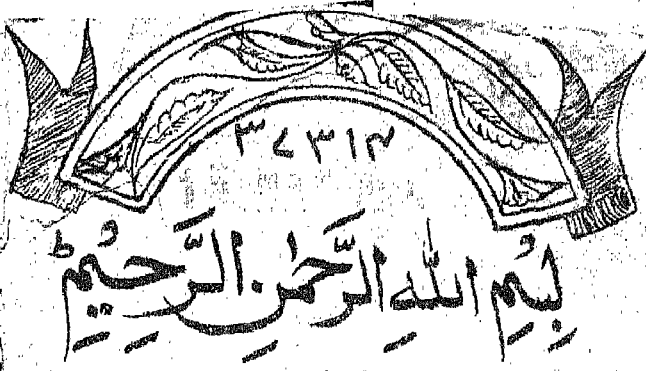 ۳۷۳۱۴
بِسْمِ اللّٰهِ الرَّحْمٰنِ الرَّحِیْمِؕ